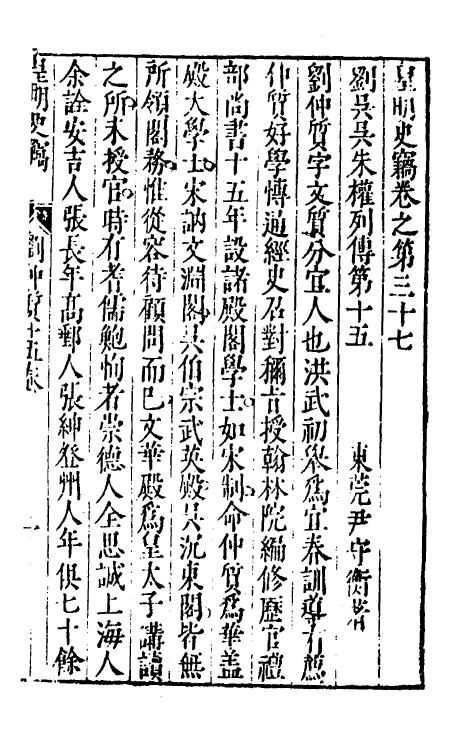 皇明史竊卷之第三十七
劉吳吳朱權列傳第十五
東莞尹守衡著
劉仲質字文質分宜人也洪武初舉爲宜春訓導有薦
仲質好學博通經史召對稱旨授翰林院編修歷官禮
部尚書十五年設諸殿閣學士如宋制命仲質爲華蓋
殿大學士宋訥文淵閣吳伯宗武英殿吳沉東閣皆無
所領閣務惟從容待顧問而已文華殿爲皇太子講讀
之所未授官時有耆儒鮑恂者崇德人全思誠上海人
余詮安吉人張長年高郵人張紳登州人年俱七十餘
皇明史竊
劉仲質十五卷
一